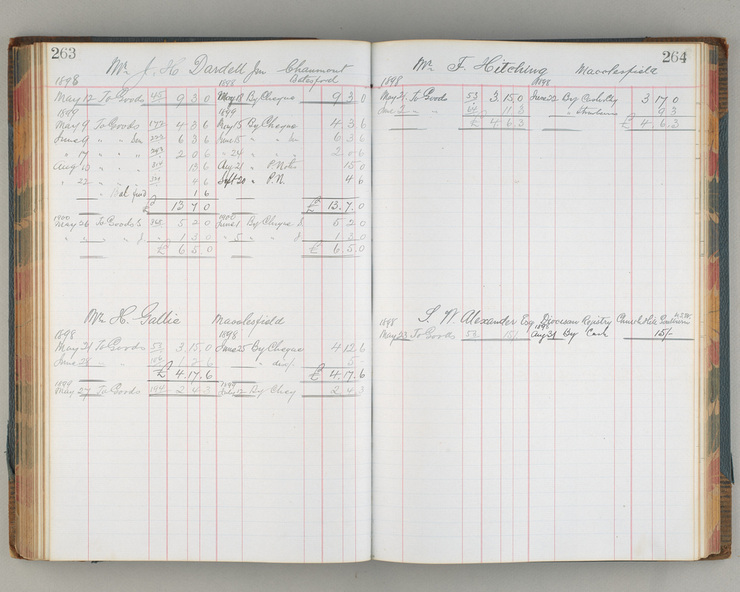 263
Mr J. H. Dardell Jnr Chaumont
1898 1898
May 12 To Goods 45 9 3 0 May 18 By Cheque 9 3 0
1899 1899
May 9 To Goods 4 3 6 May 15 By Cheque 4 3 6
June 9 " " 6 3 6 June 15 " " 6 3 6
" 17 " " 2 0 6 " 24 " 2 0 6
Aug 10 " 15 6 Aug 21 " P. Note 15 0
" 22 " " 4 6 Sept 20 " P.N. 4 6
1 6
£ 13 7 0 £ 13.7.0
1900 1900
May 26 To Goods 5 2 0 June 1 By Cheque 5 2 0
" " " 1 3 0 " 5 " " 1 3 0
£ 6 5 0 £ 6 5.0
Mr H. Gallie Macclesfield
1898 1898
May 21 To Goods 53 3 15 0 June 25 By Cheque 4 12 6
June 28 " " 1 2 6 " " 5
£ 4.17.6 £ 4.17.6
1899 1899
May 27 To Goods 194 2 4 3 By Cheq 2 4 3
264
Mr F. Hitching Macclesfield
1898 1898
May 21 To Goods 53 3.15.0 June 22 By 3 17 0
June " " 11.3 " 9 3
£ 4 6.3 £ 4.6.3
S. W. Alexander Esq Diocesan Registry
1898 1898
May 23 To Goods 53 15/- Aug 31 By Cash 15/-